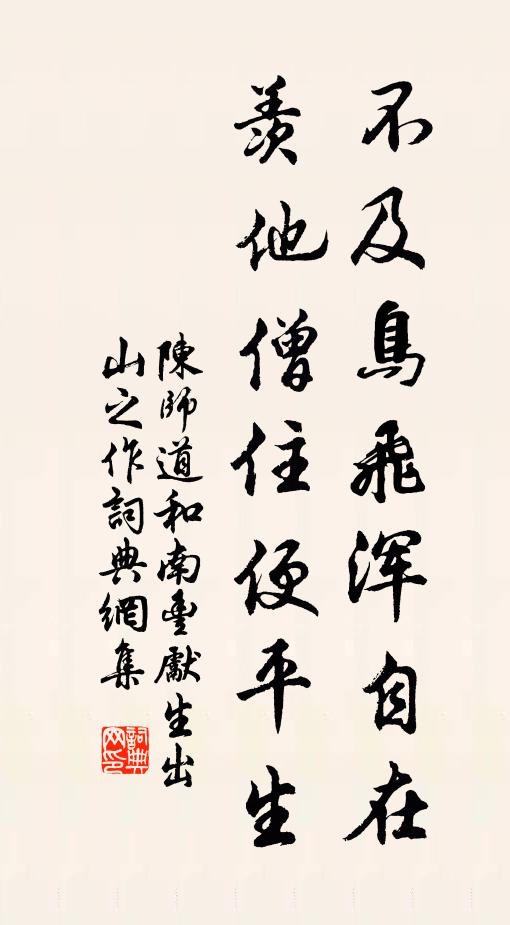 不及鳥飛浑自在
羨他僧住便平生
陳師道和南豐獻生出
山之作詞典網集
詞典
网印